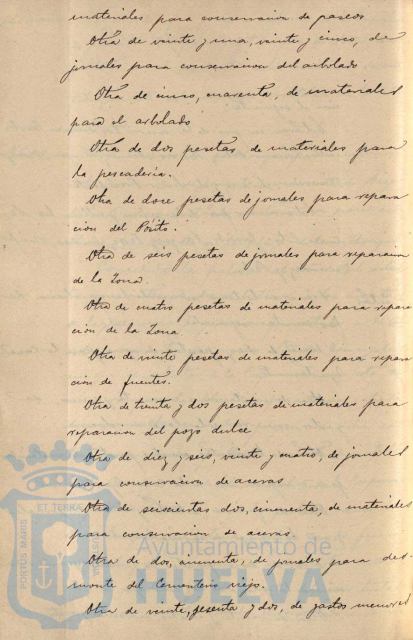 materiales para conservacion de paseos
Otra de veinte y una, veinte y cinco, de
jornales para conservacion del arbolado
Otra de cinco, cuarenta, de materiales
para el arbolado
Otra de dos pesetas de materiales para
la pescaderia.
Otra de doce pesetas de jornales para repara
cion del Pósito.
Otra de seis pesetas de jornales para reparacion
de la Zona
Otra de cuatro pesetas de materiales para repara
cion de la Zona
Otra de veinte pesetas de materiales para repara
cion de fuentes.
Otra de treinta y dos pesetas de materiales para
reparacion del pozo dulce
Otra de diez y seis, veinte y cuatro, de jornales
para conservacion de aceras
Otra de seiscientas dos, cincuenta, de materiales
para conservacion de aceras
Otra de dos, de jornales para des-
monte del Cementerio viejo.
Otra de veinte, sesenta y dos, de gastos menores
PORTUS MARIS
ET TERRA
Ayuntamiento de
HUELVA